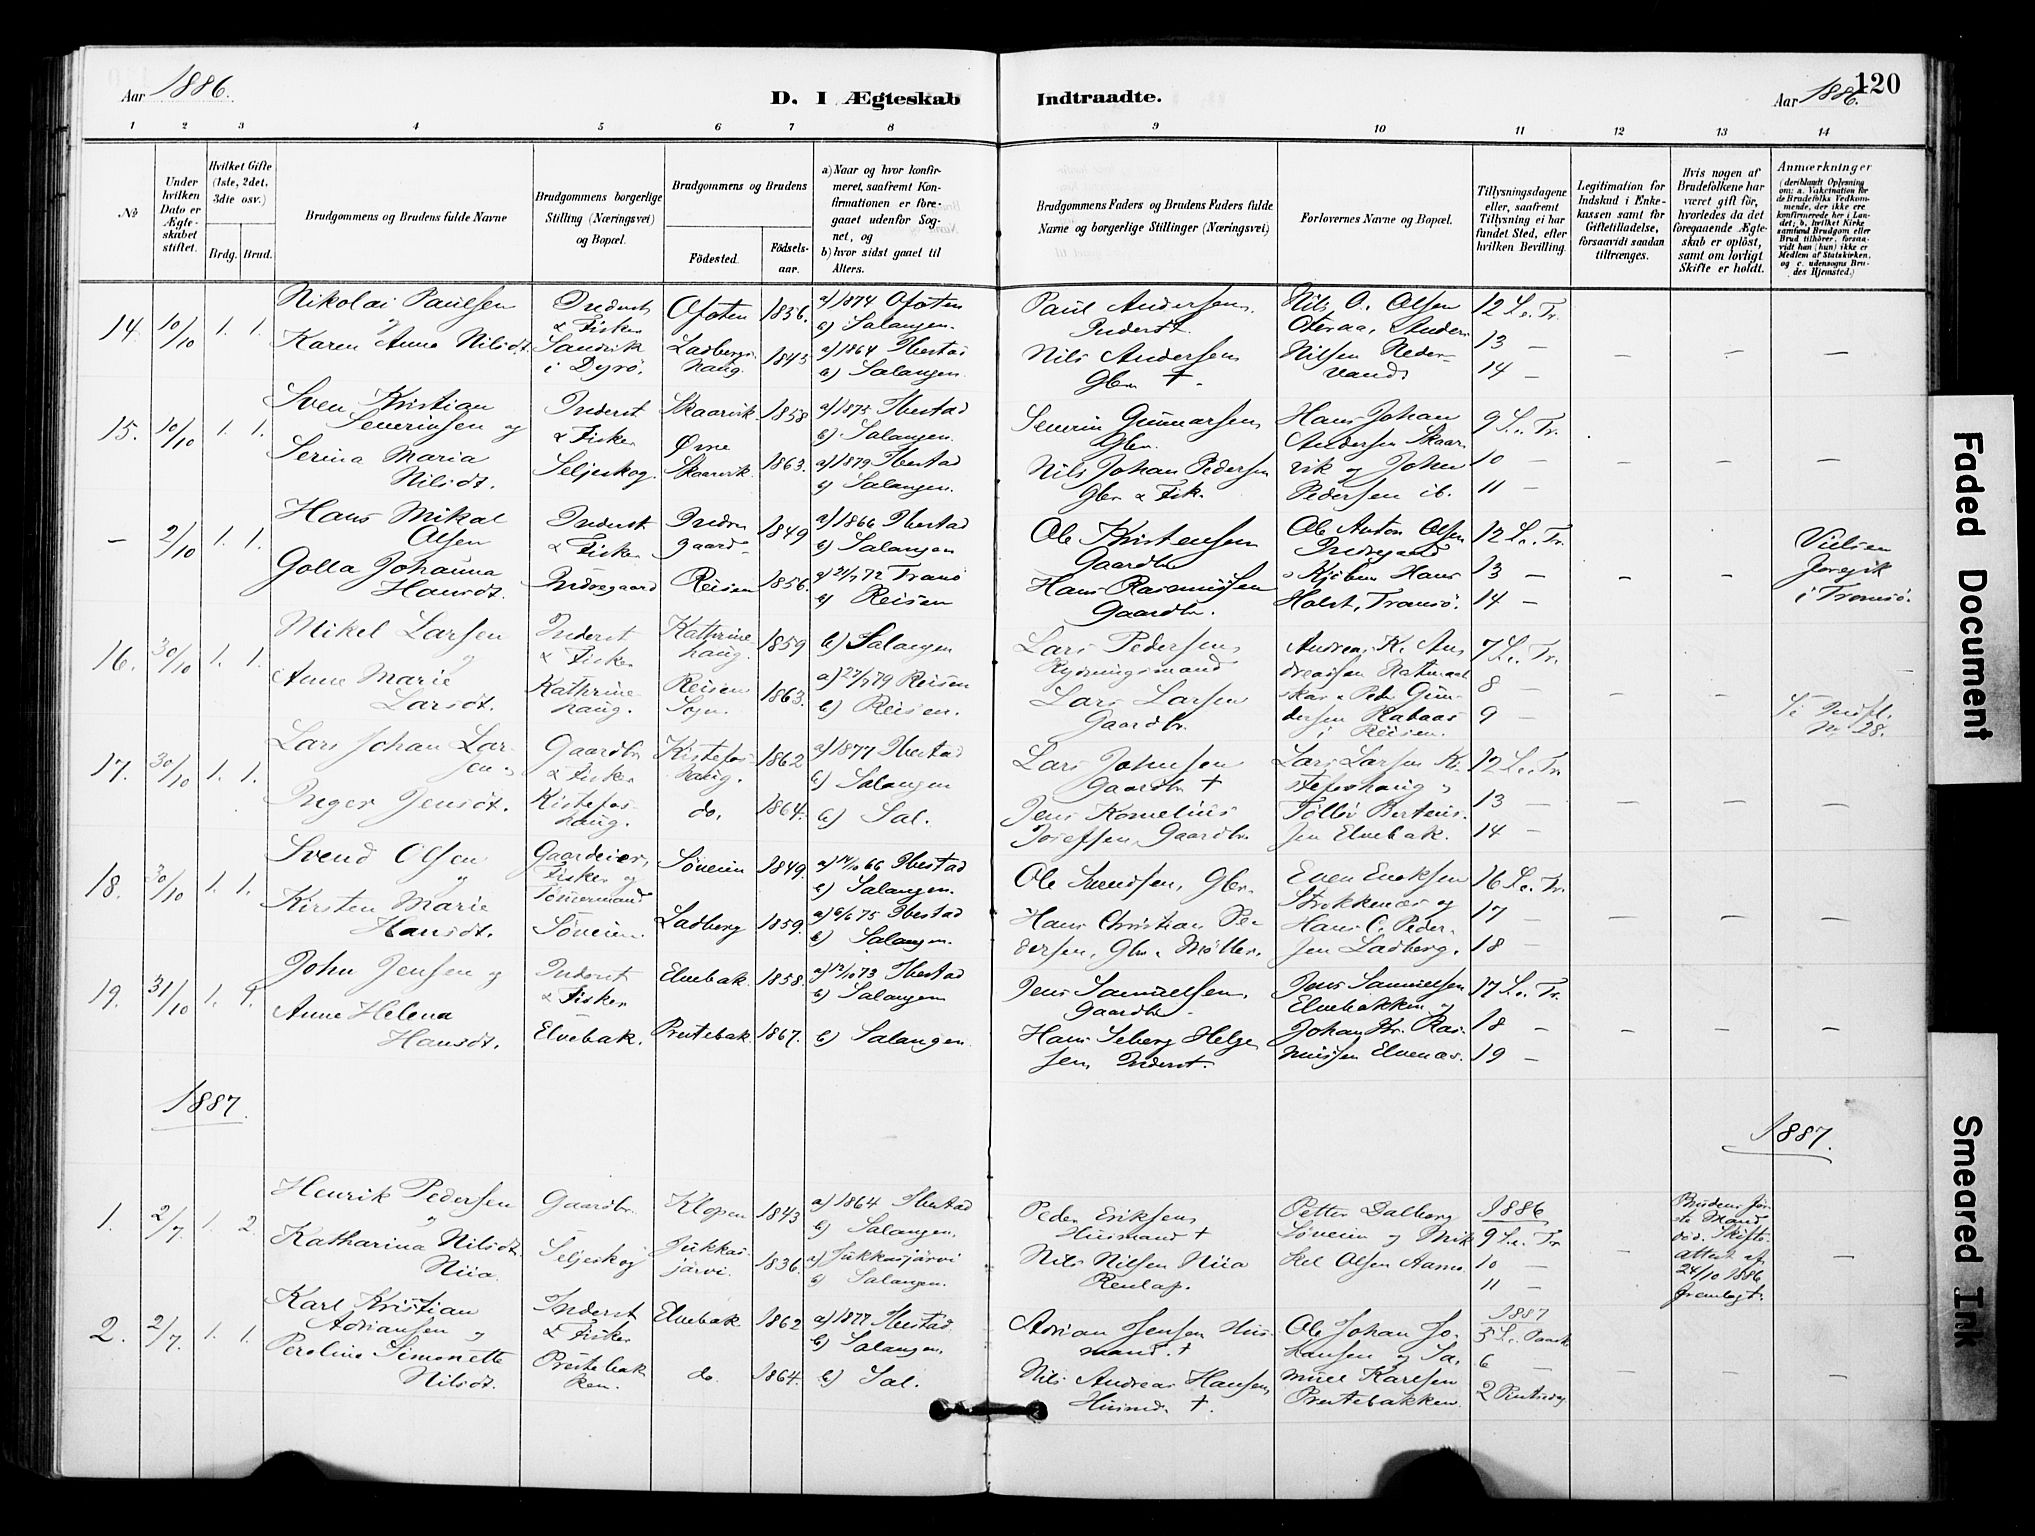 Aar 1886.
D. I Ægteskab Indtraadte.
Aar 1886.
120
1 2 3 4 5 6 7 8 9 10 11 12 13 14
No
Under hvilken Dato er Ægteskabet stiftet.
Hvilket Gifte (1ste, 2det, 3die osv.)
Brdg. Brud.
Brudgommens og Brudens fulde Navne
Brudgommens borgerlige Stilling (Næringsvei) og Bopæl.
Brudgommens og Brudens
Födested.
Födselsaar.
a) Naar og hvor konfirmeret, saafremt Konfirmationen er foregaaet udenfor Sognet, og
b) hvor sidst gaaet til Alters.
Brudgommens Faders og Brudens Faders fulde Navne og borgerlige Stillinger (Næringsvei)
Forlovernes Navne og Bopæl.
Tillysningsdagene eller, saafremt Tillysning ei har fundet Sted, efter hvilken Bevilling.
Legitimation for Indskud i Enkekassen samt for Giftetilladelse, forsaavidt saadan tiltrænges.
Hvis nogen af Brudefolkene har været gift för, hvorledes da det foregaaende Ægteskab er oplöst, samt om lovligt Skifte er holdt.
Anmærkninger
(deriblandt Oplysning om: a. Vakcination for de Brudefolks Vedkommende, der ikke ere konfirmerede her i Landet; b. hvilket Kirkesamfund Brudgom eller Brud tilhörer, forsaavidt han (hun) ikke er Medlem af Statskirken, og c. udensogns Brudes Hjemsted.)
14. 10/10 1. 1.
Nikolai Paulsen
og
Karen Anna Nilsdt.
Inderst
& Fisker
Sandvik
i Dyrø.
Ofoten 1836.
Ladberg-
haug. 1843
a) 1874 Ofoten
b) Salangen.
a) 1864 Ibestad
b) Salangen.
Paul Andersen,
Inderst.
Nils Andersen
Gbr. †.
Nils O. Olsen
Oteraa, Anders
Nilsen Neder-
vand.
12 S. e. Tr.
13 —
14 —
15. 10/10 1. 1.
Sven Kristian
Severinsen og
Serina Maria
Nilsdt.
Inderst
& Fisker
Seljeskog.
Skaarvik 1858
Øvre
Skaarvik. 1863.
a) 1875 Ibestad
b) Salangen.
a) 1879 Ibestad
b) Salangen.
Severin Gunnarsen,
Gbr.
Nils Johan Pedersen
Gbr & Fisk.
Hans Johan
Andersen Skaar-
vik og Johan
Pedersen ib.
9 S. e. Tr.
10 —
11 —
— 2/10 1. 1.
Hans Mikal
Olsen
Golla Johanna
Hansdt.
Inderst
& Fisker
Indregaard
Indre
gaard 1849
Reisen 1856.
a) 1866 Ibestad
b) Salangen
a) 21/7 72 Tranø
b) Reisen
Ole Kristensen
Gaardbr.
Hans Rasmussen
Gaardbr.
Ole Anton Olsen
Indregaard
& Kjøbm. Hans
Holst, Tromsø.
12 S. e. Tr.
13 —
14 —
Vielsen
foregik
i Tromsø.
16. 30/10 1. 1.
Mikel Larsen
og
Anne Marie
Larsdt.
Inderst
& Fisker
Kathrine-
haug.
Kathrine-
haug. 1859
Reisen
Sogn. 1863.
b) Salangen
a) 27/7 79 Reisen
b) Reisen.
Lars Pedersen,
Rydningsmand
Lars Larsen
Gaardbr.
Andreas K. An-
dreassen
& Peder Gun-
dersen Rabaas
i Reisen.
7 S. e. Tr.
8 —
9 —
No 28.
17. 30/10 1. 1.
Lars Johan Lar-
sen og
Inger Jensdt.
Gaardbr.
& Fisker
Kistefos-
haug.
Kistefos-
haug. 1862
do. 1864.
a) 1877 Ibestad
b) Salangen
b) Sal.
Lars Johnsen
Gaardbr †
Jens Kornelius
Josefsen, Gaardbr.
Lars Larsen Ki-
stefoshaug og
Tollov Bertheus-
sen Elvebak.
12 S. e. Tr.
13 —
14 —
18. 30/10 1. 1.
Svend Olsen
og
Kirsten Marie
Hansdt.
Gaardeier,
Fisker og
Tømmermand
Søveien.
Søveien 1849.
Ladberg 1859.
a) 14/10 66 Ibestad
b) Salangen.
a) 6/6 75 Ibestad
b) Salangen.
Ole Svendsen, Gbr.
Hans Christian Pe-
dersen, Gbr. & Møller.
Even Eneksen
Strokkenæs og
Hans C. Peder-
sen Ladberg.
16 S. e. Tr.
17 —
18 —
19. 31/10 1. 1.
John Jensen og
Anne Helena
Hansdt.
Inderst
& Fisker
Elvebak.
Elvebak 1858.
Prestebak 1867.
a) 12/10 73 Ibestad
b) Salangen
b) Salangen.
Jens Samuelsen,
Gaardbr.
Hans Seberg Helge-
sen, Inderst.
Jens Samuelsen
Elvebakken og
Johan Hr. Ras-
mussen Elvenæs.
17 S. e. Tr.
18 —
19 —
1887. 1887.
1. 2/7 1. 2.
Henrik Pedersen
og
Katharina Nilsdt.
Niia.
Gaardbr.
Seljeskog
Klopen 1843
Jukkas-
järvi. 1836.
a) 1864 Ibestad
b) Salangen.
a) Jukkasjärvi
b) Salangen.
Peder Eriksen,
Husmand †
Nils Nilsen Niia
Renlap.
Petter Dalberg
Søveien og Mik-
kel Olsen Aamo.
1886
9 S. e. Tr
10 —
11 —
Brudens før-
ste Mand
død. Skifte-
attest af
24/10 1886
fremlagt.
2. 2/7 1. 1.
Karl Kristian
Adriansen og
Peroline Simonette
Nilsdt.
Inderst
& Fisker
Prestebak-
ken.
Elvebak 1862
do. 1864.
a) 1877 Ibestad
b) Salangen.
b) Sal.
Adrian Jensen Hus-
mand. †
Nils Andreas Hansen,
Husmd. †.
Ole Johan Jo-
hansen og Sa-
muel Karlsen
Prestebakken.
1887
5 S. e. Paaske
6 —
2 Pintsedag
Faded Document
Smeared Ink